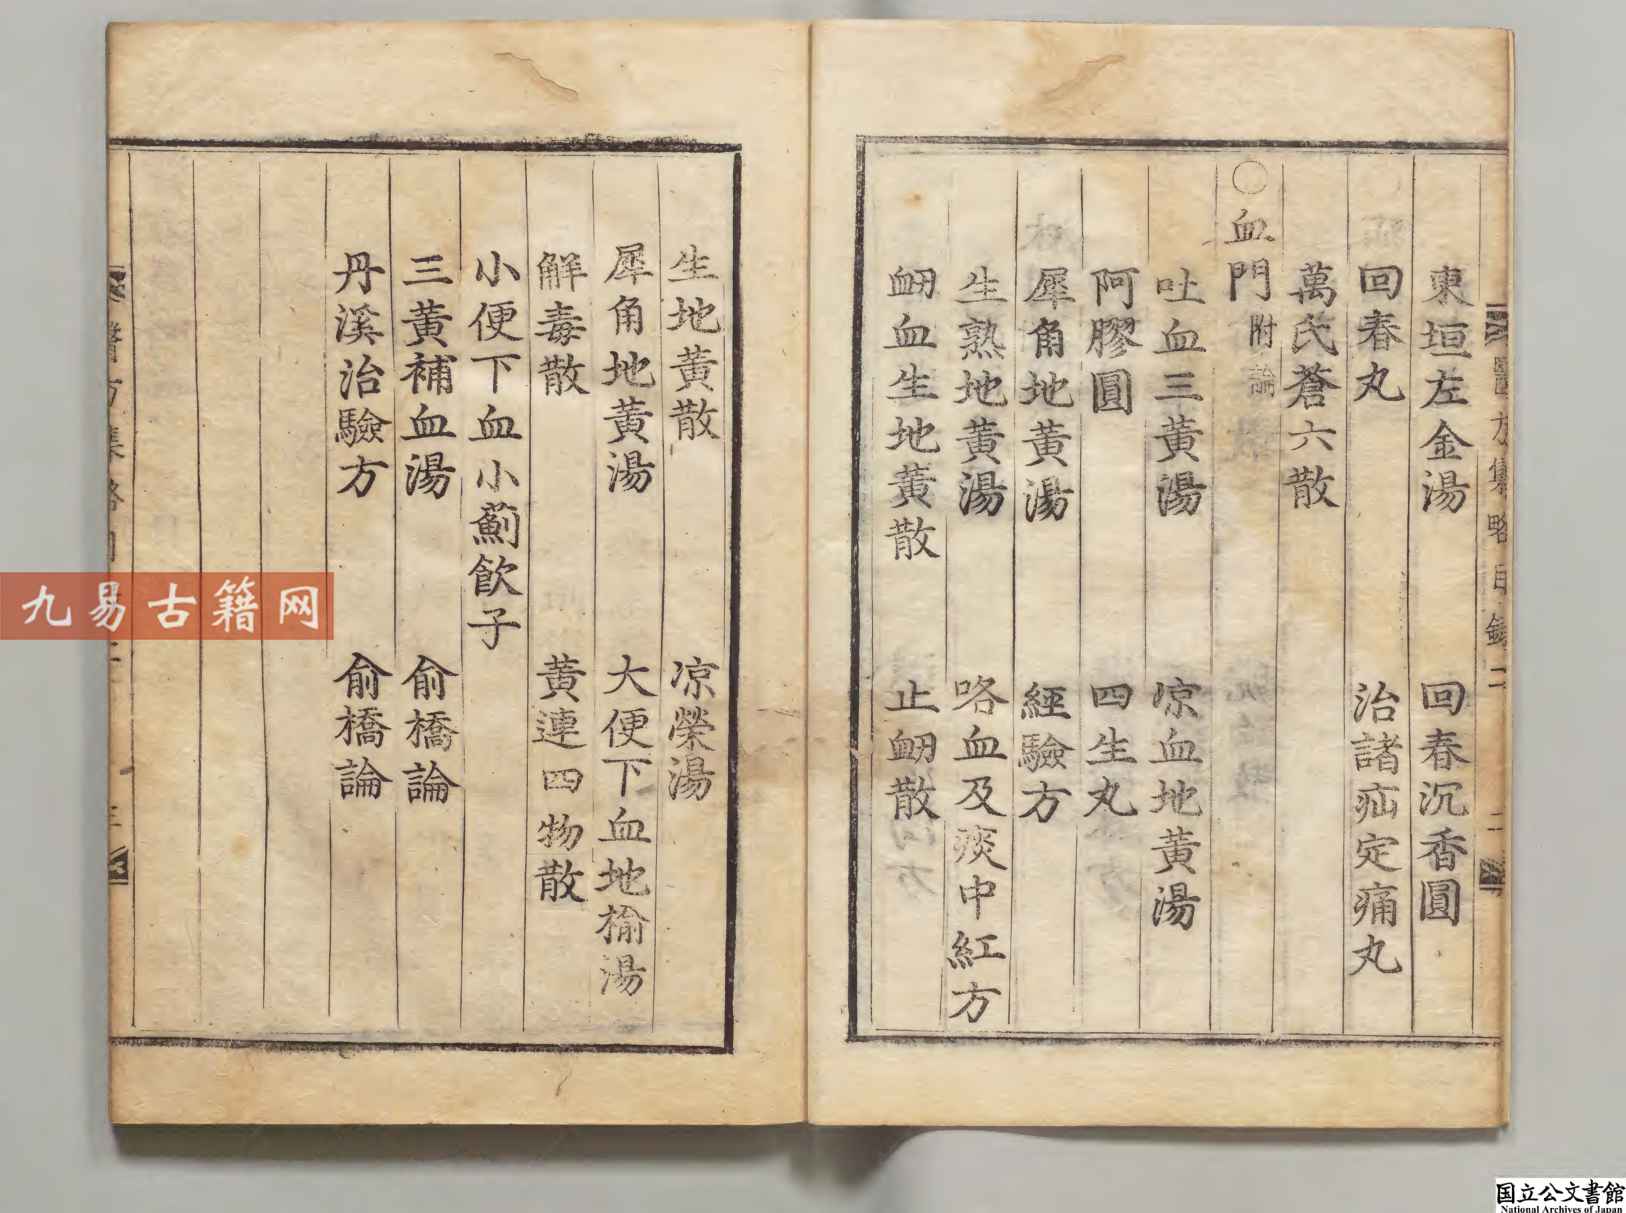 醫方集略目錄二
二
東垣左金湯
回春沉香圓
回春丸
治諸疝定痛丸
萬氏蒼六散
○血門附論
吐血三黃湯
凉血地黃湯
阿膠圓
四生丸
犀角地黃湯
經驗方
生熟地黃湯
咯血及痰中紅方
衄血生地黃散
止衄散
生地黃散
凉榮湯
犀角地黃湯
大便下血地榆湯
解毒散
黃連四物散
小便下血小薊飲子
三黃補血湯
俞橋論
丹溪治驗方
俞橋論
九易古籍网
国立公文書館
National Archives of Japan